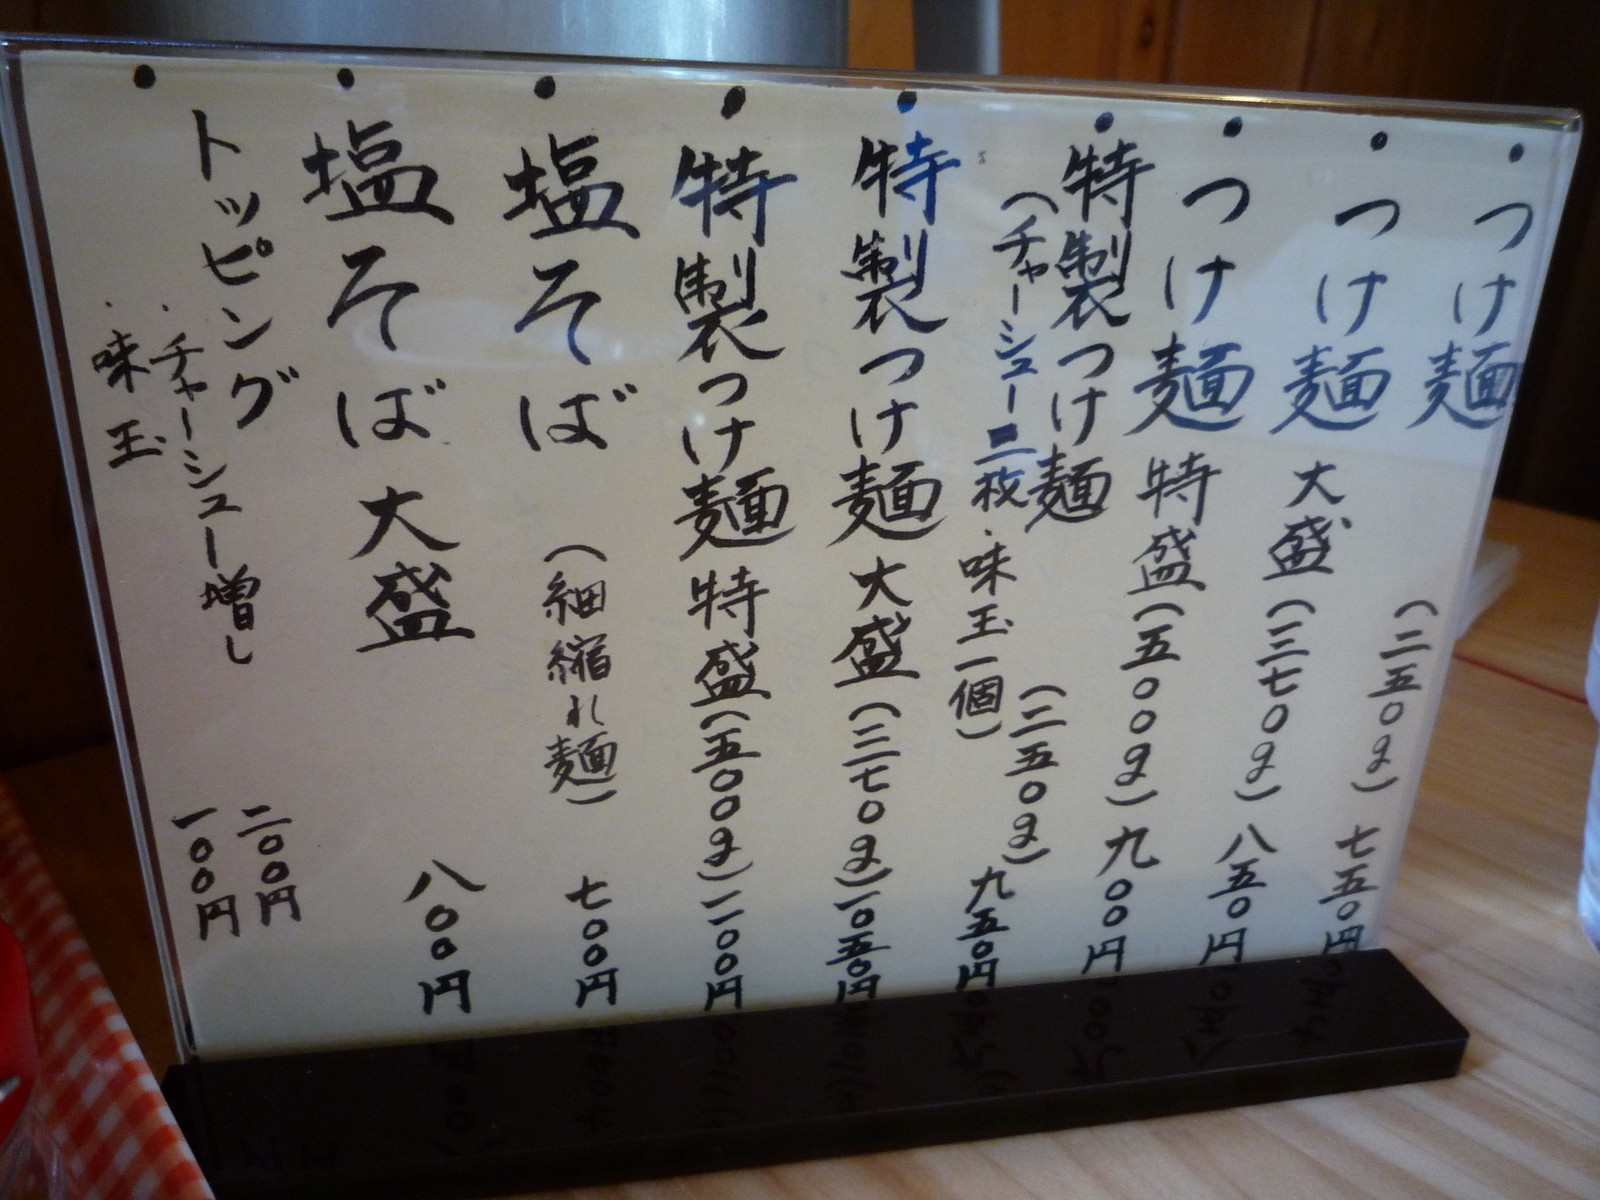 ・つけ麺（二五〇g）七五〇円
・つけ麺 大盛（三七〇g）八五〇円
・つけ麺 特盛（五〇〇g）九〇〇円
・特製つけ麺（二五〇g）九五〇円
（チャーシュー三枚・味玉一個）
・特製つけ麺 大盛（三七〇g）一〇五〇円
・特製つけ麺 特盛（五〇〇g）一一〇〇円
・塩そば（細縮れ麺）七〇〇円
・塩そば 大盛 八〇〇円
・トッピング
・チャーシュー増し 二〇〇円
・味玉 一〇〇円